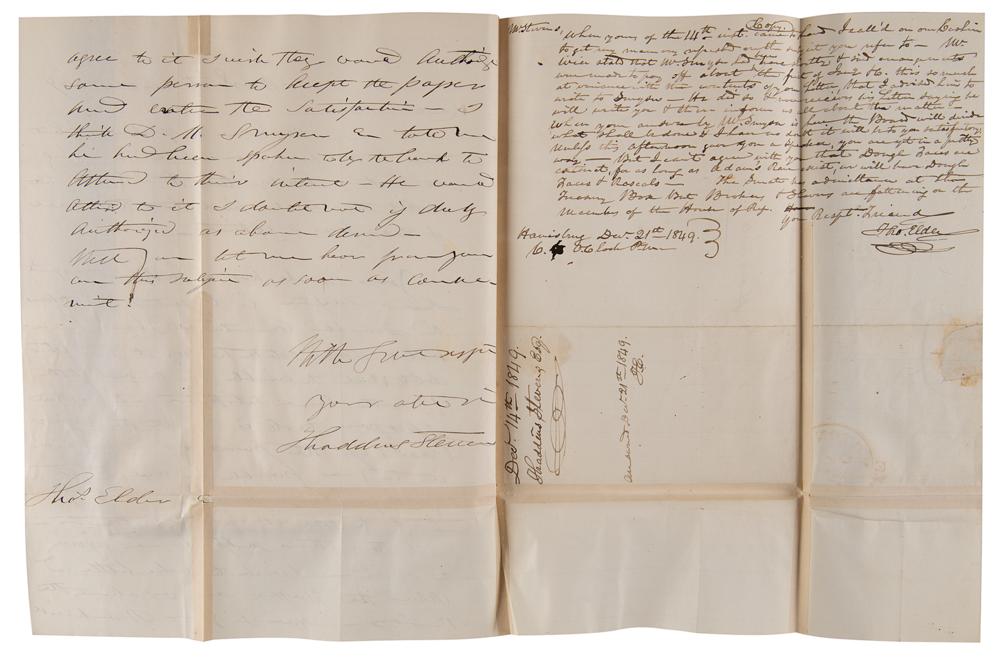 agree to it I wish they would Authorize
some person to accept the papers
and enter the Satisfaction — I
think D. M. Smyser Esq told me
he had been spoken to by to
Attend to their interest — He would
attend to it I doubt not if duly
Authorized as above
Will you let me hear from you
on this subject as soon as conve-
nient!
With Great respect
Your obt St
Thaddeus Stevens
Thos. Elder
Copy.
Mr Stevens, When yours of the 14th inst. came to hand I call'd on our Cashier
to get my memory refreshed on the subject you refer to — Mr
Weir stated that Mr Smyser had & said arrangements
were made to pay off about the first of this so much
at variance with the contents of your Letter, that I advised him to
write to Smyser — He did so & on receiving his Letter he
will write you & then inform us all about the matter —
When your answer by Mr Smyser is the Board will decide
what shall be done & I have no doubt it will be to you satisfactory.
Unless this afternoon give you a Speaker, you are yet in a pretty
way. — But I can't agree with you that Dough Faces are
extinct, for as long as Adam's Race exist, we will have Dough
Faces & Rascals — The has admittance at the
Treasury Box But Brokers & Shavers are fattening on the
Members of the House of Rep.
Your Respt. Friend
Tho. Elder
Harrisburg Decr 21st 1849.
Decr. 14th 1849.
Thaddeus Stevens Esq.
answered Decr 21st 1849.
T.E.